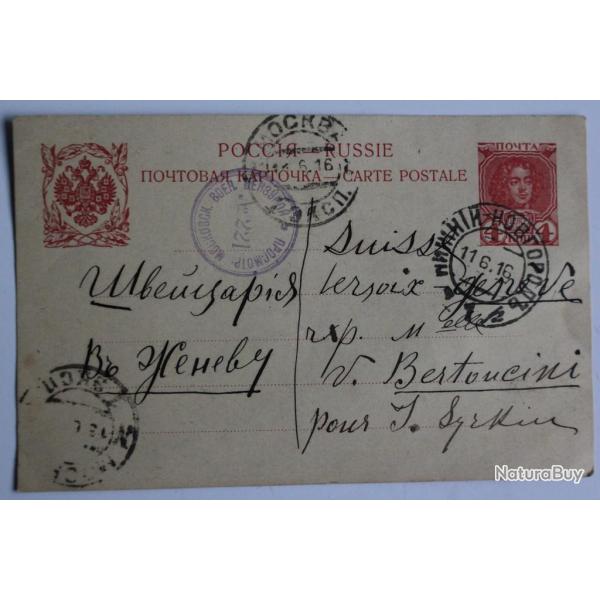 РОССІЯ. RUSSIE
ПОЧТОВАЯ КАРТОЧКА — CARTE POSTALE
ПОЧТА
4
МОСКВА
6.16
ЭКСП.
МОСКОВСК. ВОЕН. ЦЕНЗУРОЙ
ПРОСМОТР.
НИЖНІЙ-НОВГОРОДЪ
11.6.16
Швейцарія
Въ Женеву
Suisse
Versoix Genève
чр. Melle
V. Bertoncini
pour J. Syrkin
NaturaBuy